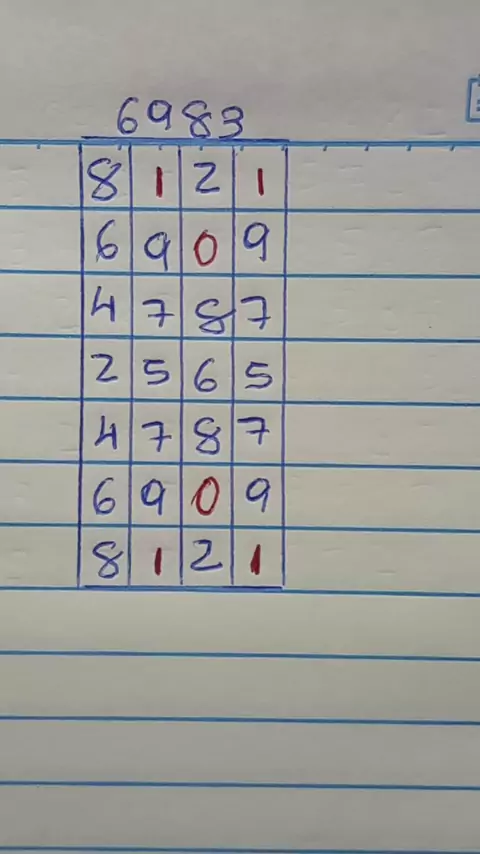 6983
8 1 2 1
6 9 0 9
4 7 8 7
2 5 6 5
4 7 8 7
6 9 0 9
8 1 2 1